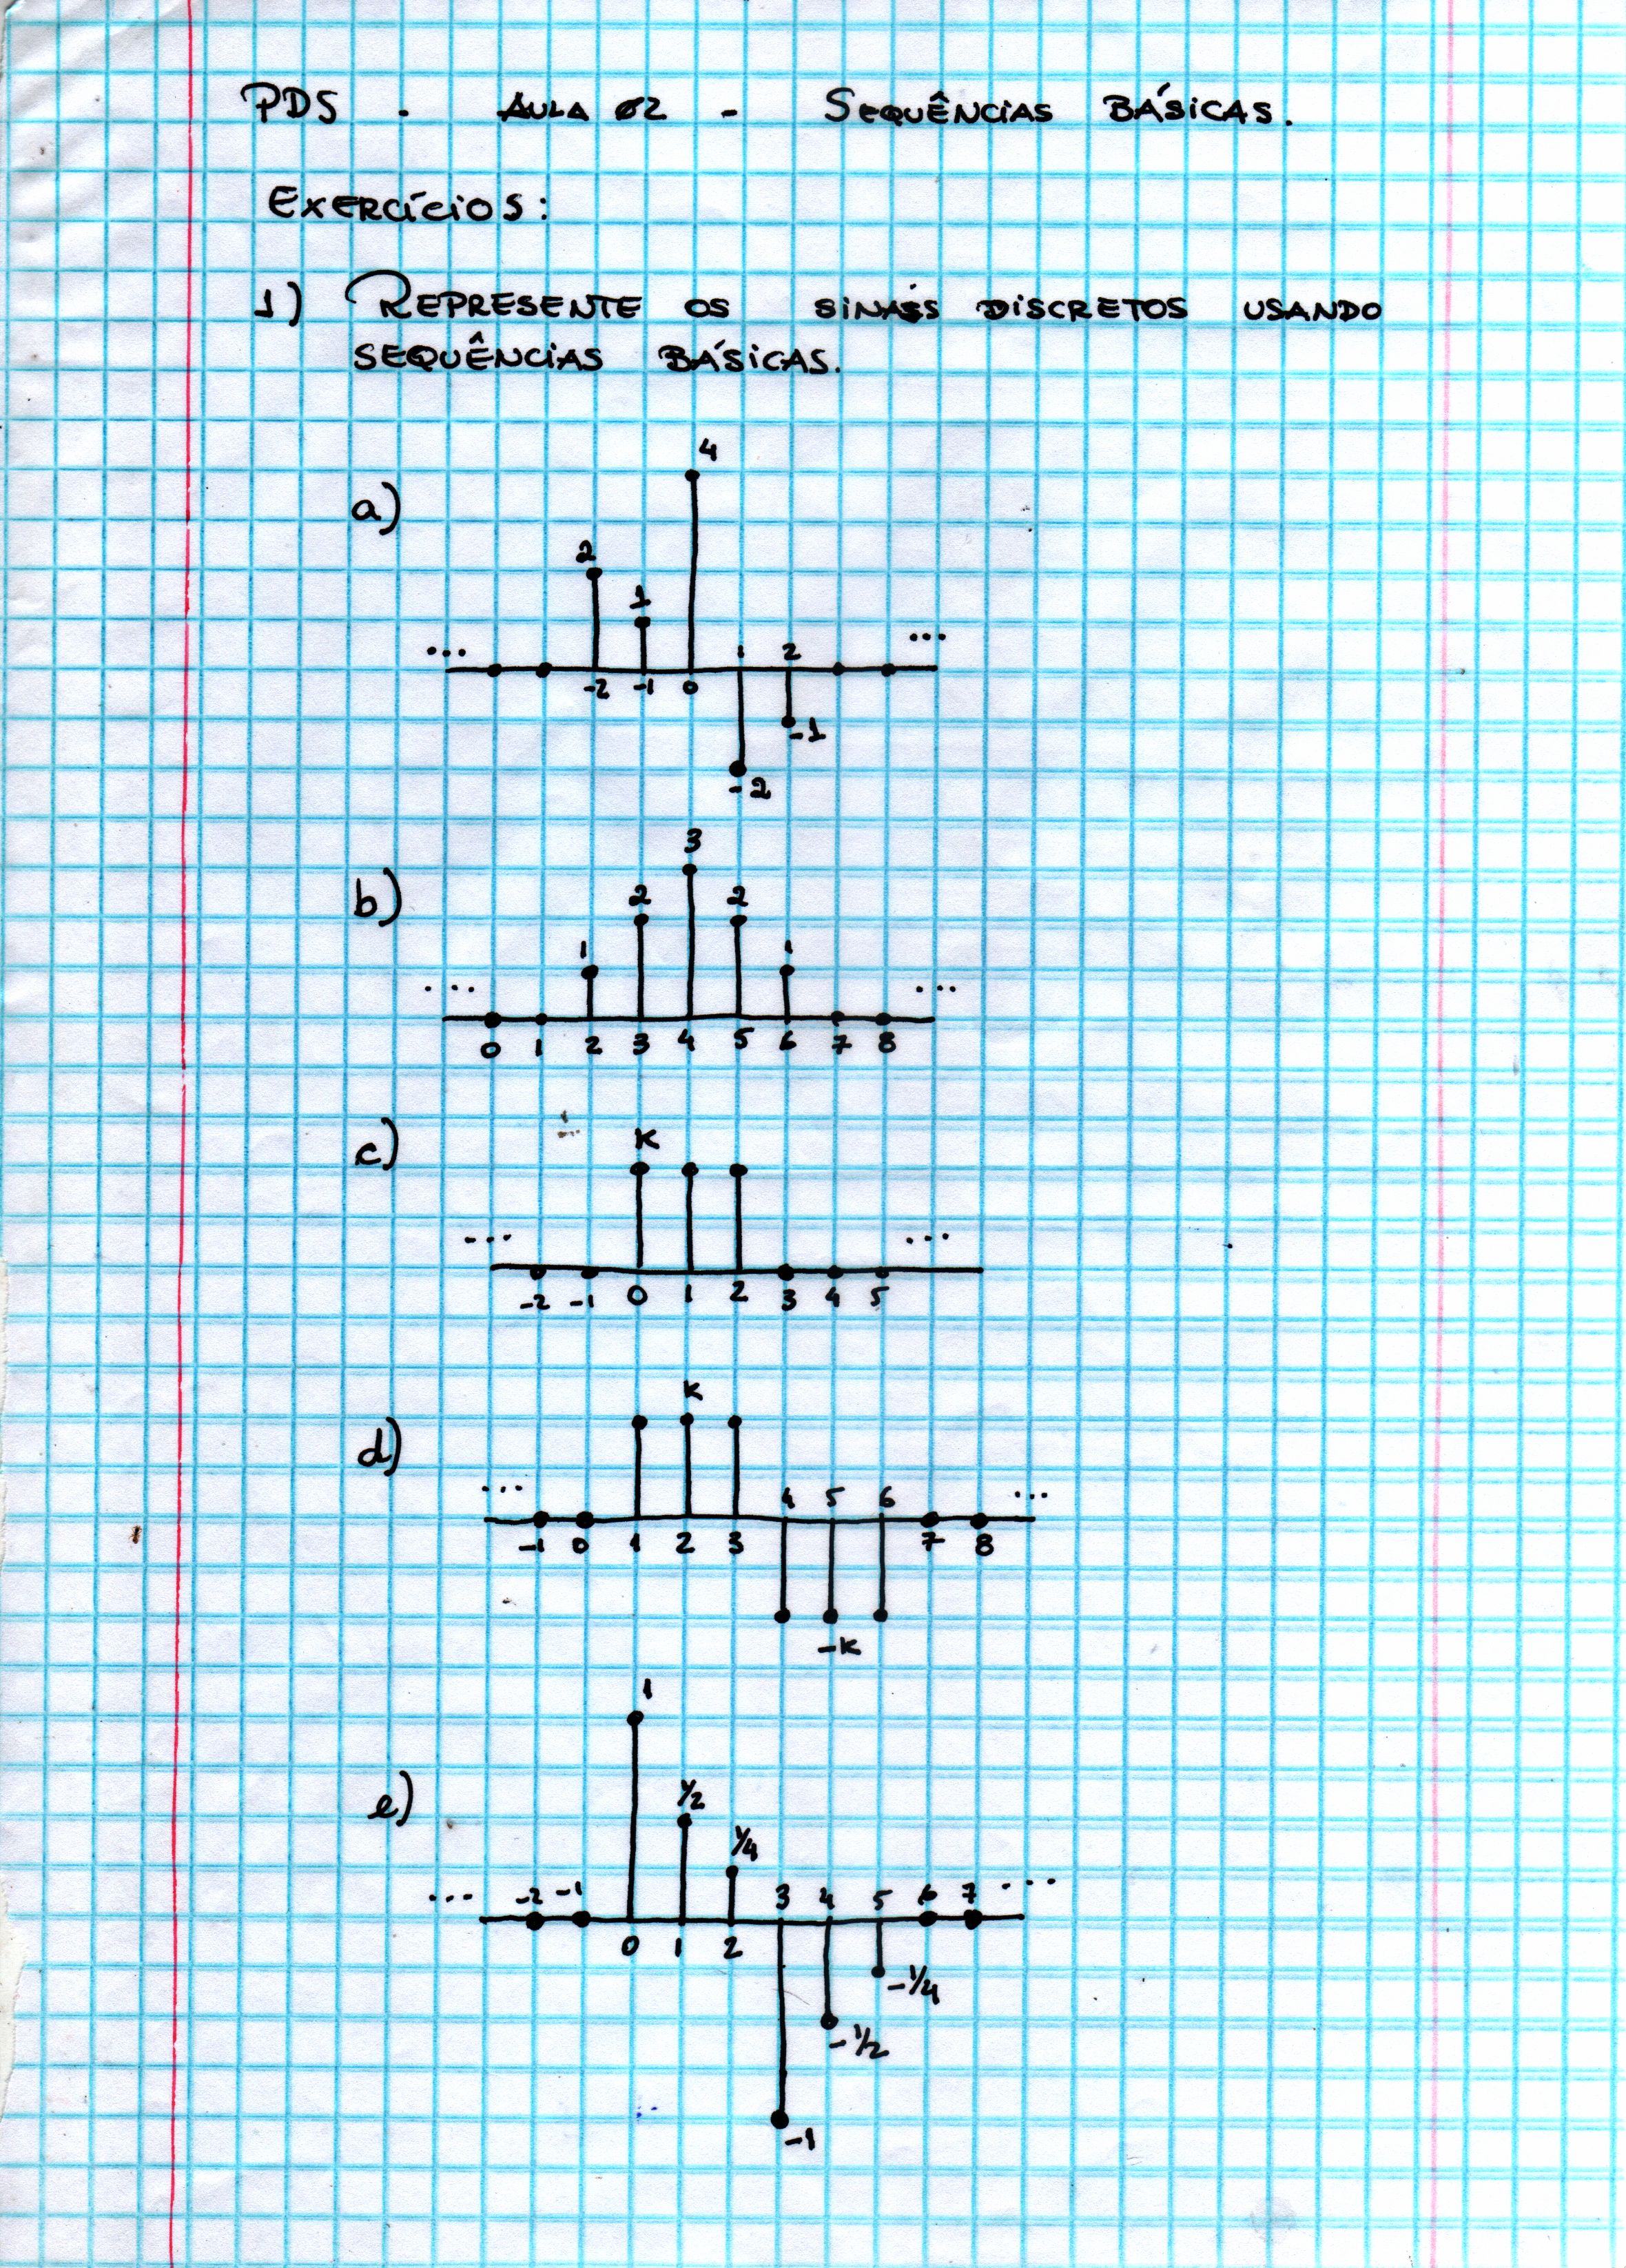 PDS - AULA 02 - SEQUÊNCIAS BÁSICAS.
EXERCÍCIOS:
1) REPRESENTE OS SINAIS DISCRETOS USANDO
SEQUÊNCIAS BÁSICAS.
a)
4
2
1
... 1 2 ...
-2 -1 0
-1
-2
b)
3
2 2
1 1
... ...
0 1 2 3 4 5 6 7 8
c)
K
... ...
-2 -1 0 1 2 3 4 5
d)
K
... 4 5 6 ...
-1 0 1 2 3 7 8
-K
e)
1
1/2
1/4
... -2 -1 3 4 5 6 7 ...
0 1 2
-1/4
-1/2
-1